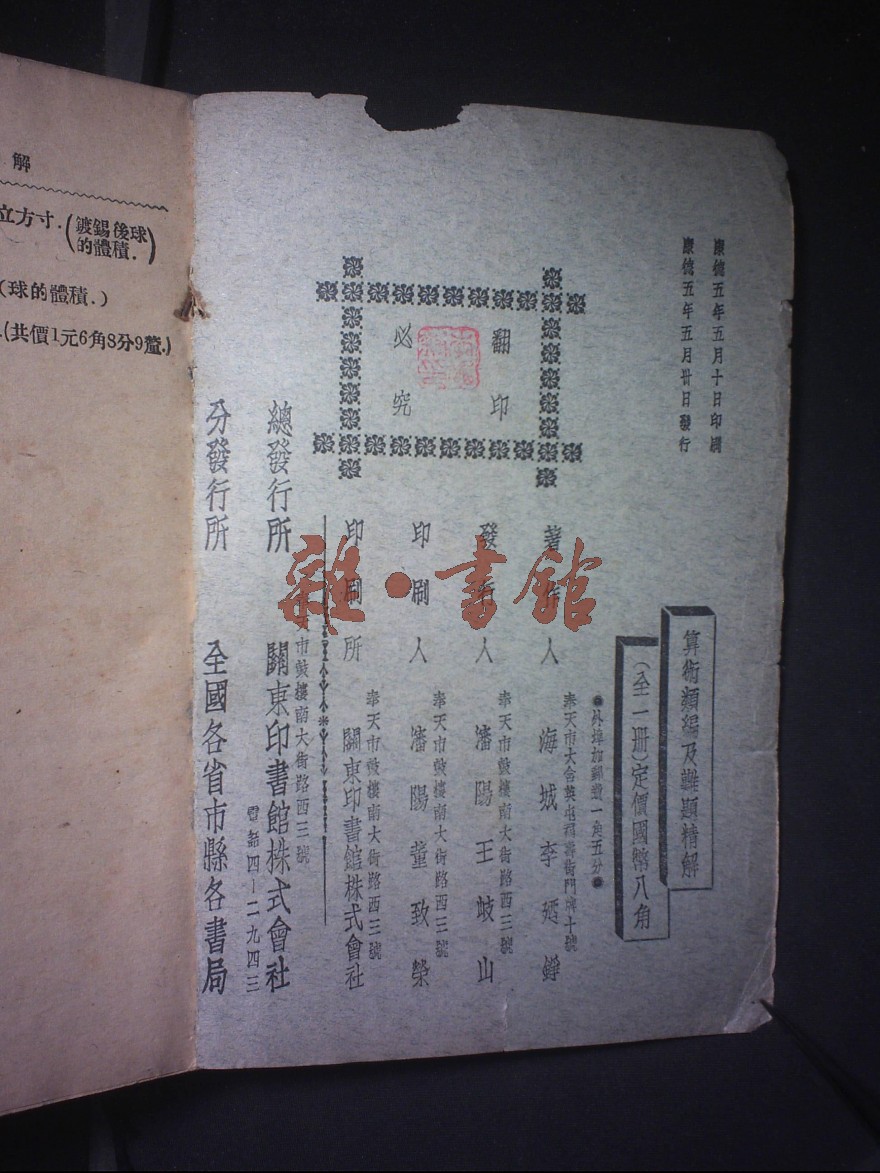 康德五年五月十日印刷
康德五年五月卅日發行
算術類編及難題精解
(全一冊)定價國幣八角
外埠加郵費一角五分
翻印
必究
奉天市大舍英屯福壽街門牌十號
著作人 海城李
奉天市鼓樓南大街路西三號
發行人 瀋陽王岐山
奉天市鼓樓南大街路西三號
印刷人 瀋陽董致榮
奉天市鼓樓南大街路西三號
印刷所 關東印書館株式會社
奉天市鼓樓南大街路西三號
總發行所 關東印書館株式會社
電話四-二九四三
分發行所 全國各省市縣各書局
解
立方寸.(鍍錫後球的體積.)
(球的體積.)
(共價1元6角8分9釐.)
雜·書館